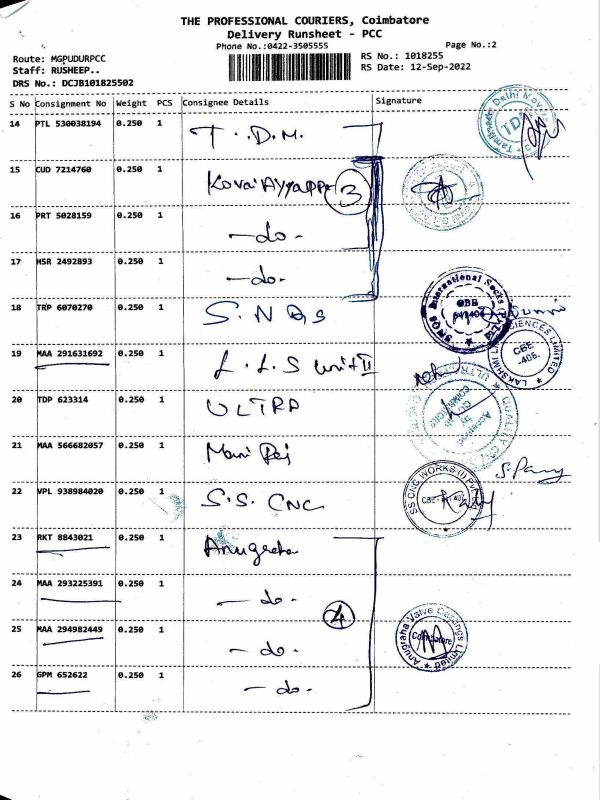 THE PROFESSIONAL COURIERS, Coimbatore
Delivery Runsheet - PCC
Phone No.:0422-3505555 Page No.:2
Route: MGPUDURPCC RS No.: 1018255
Staff: RUSHEEP.. RS Date: 12-Sep-2022
DRS No.: DCJB101825502
S No Consignment No Weight PCS Consignee Details Signature
14 PTL 530038194 0.250 1 T.D.M.
15 CUD 7214760 0.250 1 Kovai Ayyappa 3
16 PRT 5028159 0.250 1 -do-
17 HSR 2492893 0.250 1 -do-
18 TRP 6070270 0.250 1 S.N Qs
International Socks
CBE
19 MAA 291631692 0.250 1 L.L.S unit II
SCIENCES LIMITED
CBE
-406.
LAKSHMI
20 TDP 623314 0.250 1 ULTRA
21 MAA 566682057 0.250 1 Mani
S.Pany
22 VPL 938984020 0.250 1 S.S. CNC
SS CNC WORKS (I) Pvt
23 RKT 8843021 0.250 1 Anugraha
24 MAA 293225391 0.250 1 -do- 4
25 MAA 294982449 0.250 1 -do-
Anugraha Valve Castings Limited
Coimbatore
26 GPM 652622 0.250 1 -do-